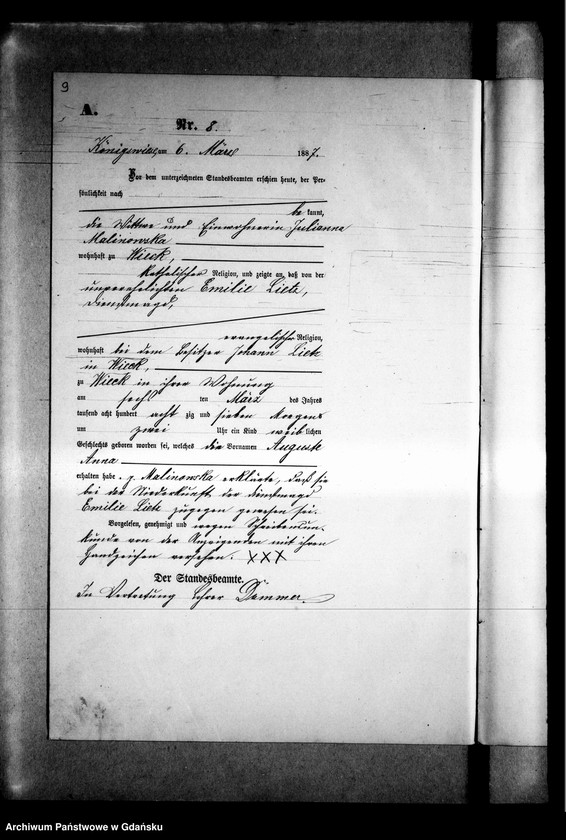 9
A.
Nr. 8.
Königswiese am 6. März 1887.
Vor dem unterzeichneten Standesbeamten erschien heute, der Per-
sönlichkeit nach
be kannt,
die Wittwe und Einwohnerin Julianna
Malinowska
wohnhaft zu Wieck,
katholischer Religion, und zeigte an, daß von der
unverehelichten Emilie Lietz,
Dienstmagd,
evangelischer Religion,
wohnhaft bei dem Besitzer Johann Lietz
in Wieck,
zu Wieck in ihrer Wohnung
am sechs ten März des Jahres
tausend acht hundert acht zig und sieben Morgens
um zwei Uhr ein Kind weib lichen
Geschlechts geboren worden sei, welches die Vornamen Auguste
Anna
erhalten habe. p. Malinowska erklärte, daß sie
bei der Niederkunft der Dienstmagd
Emilie Lietz zugegen gewesen sei.
Vorgelesen, genehmigt und wegen Schreibensun-
kunde von der Anzeigenden mit ihrem
Handzeichen versehen. XXX
Der Standesbeamte.
In Vertretung Lehrer Dammer
Archiwum Państwowe w Gdańsku